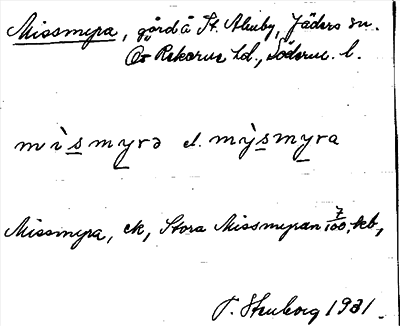 Missmyra, gård å St. Aluby, Jäders sn.
Ö. Rekarne hd., Söderm. l.
mìsmyrə el. mỳsmyra
Missmyra, ek, Stora Missmyran 7/100, kb,
T. Stenborg 1931.